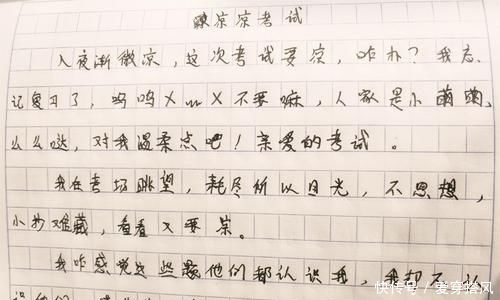 凉凉考试
入夜渐微凉，这次考试要凉，咋办？我忘
记复习了，呜呜X﹏X不要嘛，人家是小萌萌，
么么哒，对我温柔点吧！亲爱的考试。
我在考场眺望，耗尽所以目光，不思想，
小抄难藏，看看又要凉。
我咋感觉这些题他们都认识我，我却不认
识他们
快传号/爱穿搭风